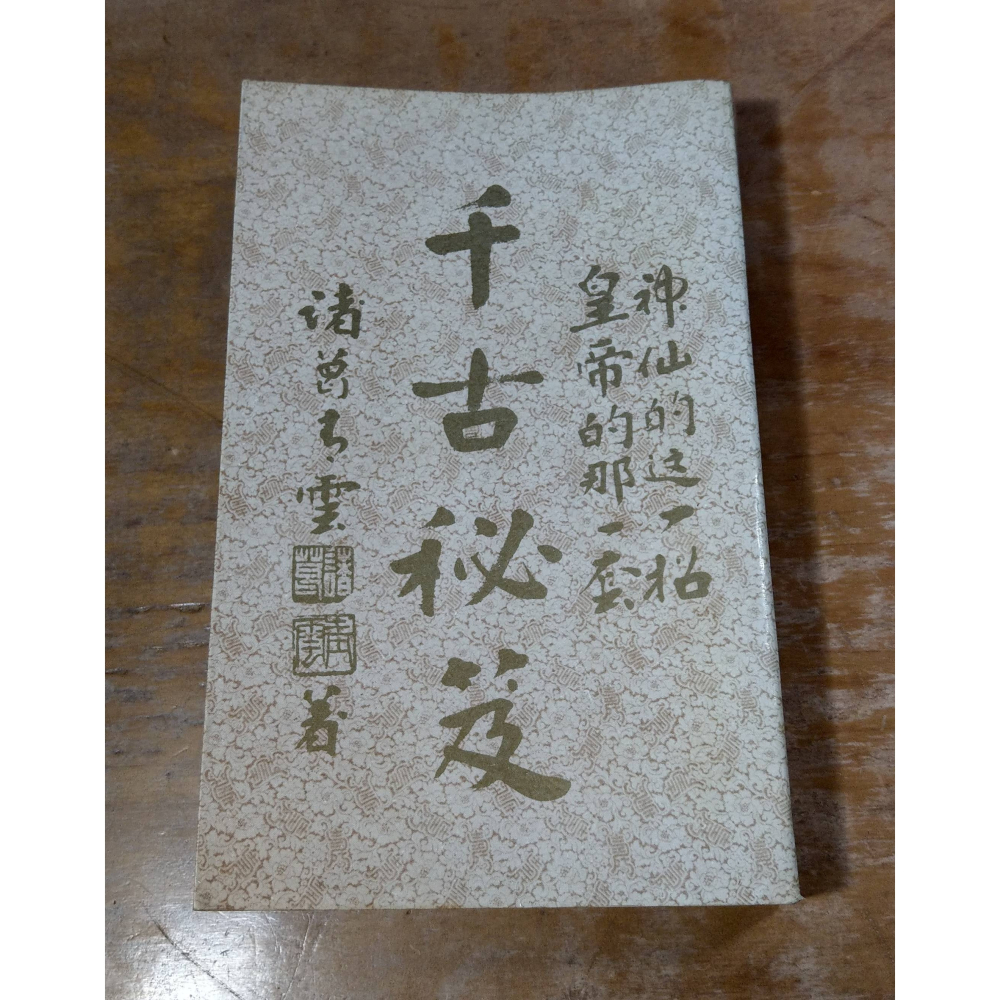 神仙的这一招
皇帝的那一套
千古秘笈
諸葛青雲著